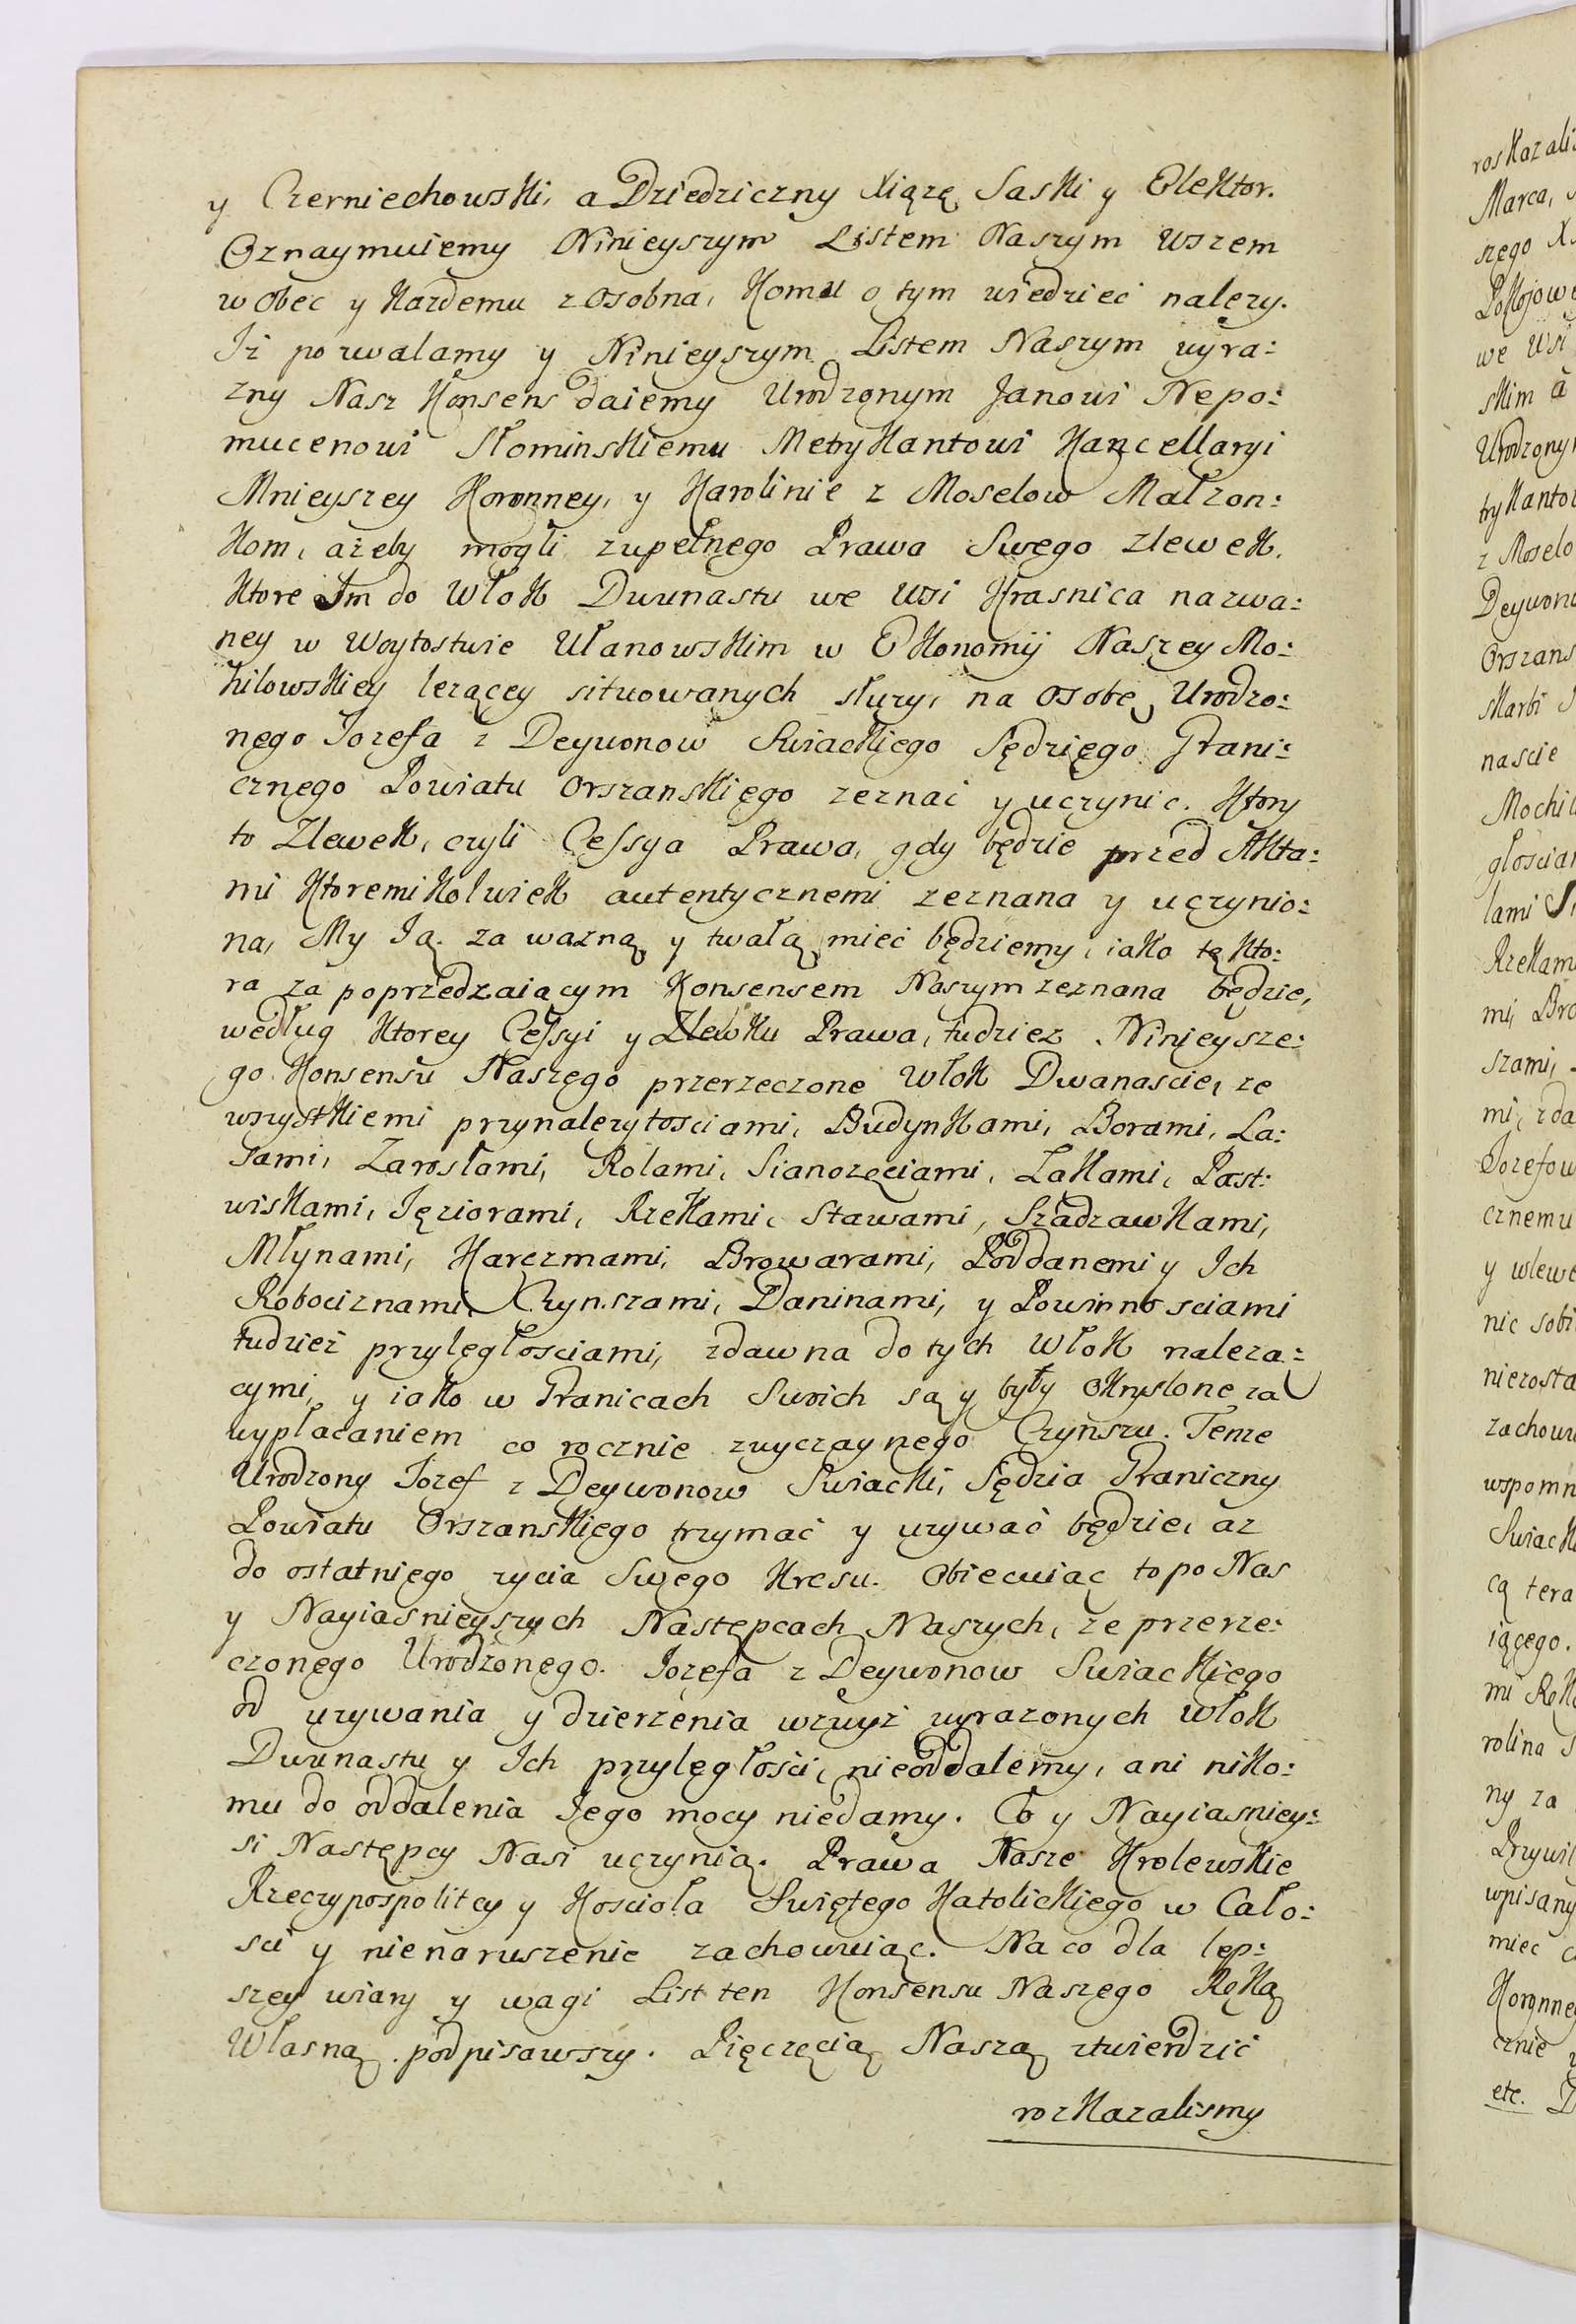 y Czerniechowski, a Dziedziczny Xiąże Saski y Elektor.
Oznaymuiemy Ninieyszym Listem Naszym wszem
wobec y kazdemu z osobna, komu o tym wiedziec nalezy.
Iż pozwalamy y Ninieyszym Listem Naszym wyra:
zny Nasz Konsens daiemy Urodzonym Janowi Nepo:
mucenowi Słominskiemu Metrykantowi Kancellaryi
Mnieyszey Koronney, y Karolinie z Moselow Małzon:
kom, ażeby mogli zupełnego Prawa Swego zlewek,
ktore Im do Włok Dwunastu we Wsi Krasnica nazwa:
ney w Woytostwie Ułanowskim w Ekonomij Naszey Mo:
hilowskiey lezącey situowanych słuzy, na osobę Urodzo:
nego Jozefa z Deywonow Swiackiego Sędziego Grani:
cznego Powiatu Orszanskiego zeznać y uczynic. Ktory
to Zlewek, czyli Cessya Prawa, gdy będzie przed Akta:
mi ktoremikolwiek autentycznemi zeznana y uczynio:
na, My Ią za wazną y twałą mieć będziemy, iako tę kto:
ra za poprzedzaiącym Konsensem Naszym zeznana będzie,
według ktorey Cessyi y Zlewku Prawa, tudziez Ninieysze:
go Konsensu Naszego przerzeczone Włok Dwanascie, ze
wszystkiemi przynalezytosciami, Budynkami, Borami, La:
sami, Zarosłami, Rolami, Sianozęciami, Łakami, Past:
wiskami, Ieziorami, Rzekami, Stawami, Szadzawkami,
Młynami, Karczmami, Browarami, Poddanemi y Ich
Robociznami, Czynszami, Daninami, y Powinnosciami
tudzież przyległosciami, zdawna do tych Włok nalezą:
cymi, y iako w Granicach Swoich są y były okryslone za
wypłacaniem co rocznie zwyczaynego Czynszu. Tenze
Urodzony Jozef z Deywonow Swiacki, Sędzia Graniczny
Powiatu Orszanskiego trzymać y uzywać będzie, az
do ostatniego zycia Swego kresu. Obiecuiąc to po Nas
y Nayiasnieyszych Następcach Naszych, ze przerze:
czonego Urodzonego Jozefa z Deywonow Swiackiego
od uzywania y dzierżenia wzwyż wyrazonych Włok
Dwunastu y Ich przyległości, nieoddalemy, ani niko:
mu do oddalenia Jego mocy niedamy. Co y Nayiasniey:
si Następcy Nasi uczynią. Prawa Nasze Krolewskie
Rzeczypospolitey y Koscioła Swiętego Katolickiego w Cało:
sci y nienaruszenie zachowuiąc. Na co dla lep:
szey wiary y wagi List ten Konsensu Naszego Ręką
Własną podpisawszy. Pięczęcią Naszą ztwierdzić
rozkazalismy

roskazali
Marca,
szego
Pokojow
we Wsi
skim a
Urodzony
trykanto
z Moselo
Deywon
Orszans
skarbi
nascie
Mochi
głoscia
lami
Rzekam
mi, Bro
szami,
mi, zda
Jozefow
cznemu
y wlew
nic sobi
niezosta
zachow
wspomn
Swiack
cą tera
iącego.
mi Ręk
rolina
ny za
Przywil
wpisany
miec
Koronne
cznie
etc.